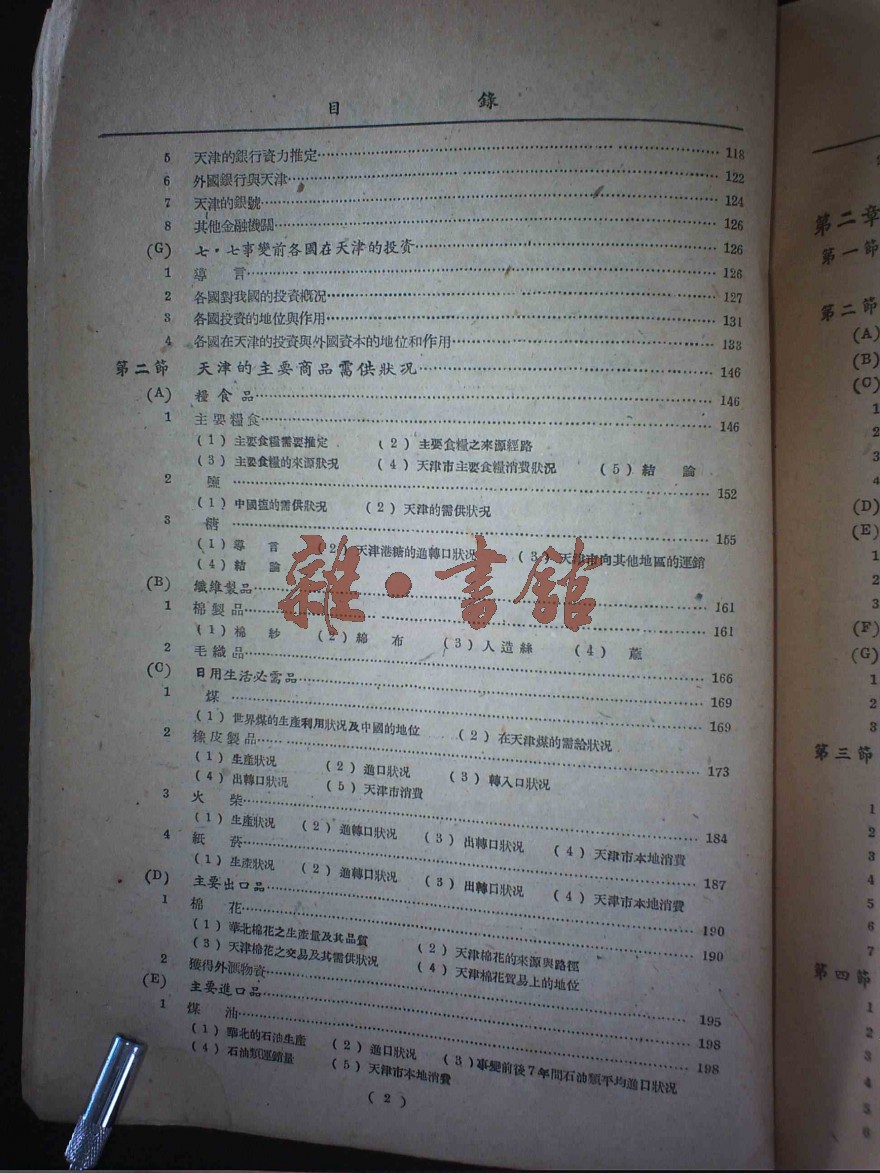 目 錄
5 天津的銀行資力推定 118
6 外國銀行與天津 122
7 天津的銀號 124
8 其他金融機關 126
(G) 七・七事變前各國在天津的投資 126
1 導 言 126
2 各國對我國的投資概況 127
3 各國投資的地位與作用 131
4 各國在天津的投資與外國資本的地位和作用 133
第二節 天津的主要商品需供狀況 146
(A) 糧食品 146
1 主要糧食 146
(1) 主要食糧需要推定 (2) 主要食糧之來源經路
(3) 主要食糧的來源狀況 (4) 天津市主要食糧消費狀況 (5) 結 論
2 鹽 152
(1) 中國鹽的需供狀況 (2) 天津的需供狀況
3 糖 155
(1) 導 言 (2) 天津港糖的進轉口狀況 (3) 天津市向其他地區的運銷
(4) 結 論
(B) 纖維製品 161
1 棉製品 161
(1) 棉 紗 (2) 綿 布 (3) 人造絲 (4) 蔴
2 毛織品 166
(C) 日用生活必需品 169
1 煤 169
(1) 世界煤的生產利用狀況及中國的地位 (2) 在天津煤的需給狀況
2 橡皮製品 173
(1) 生產狀況 (2) 進口狀況 (3) 轉入口狀況
(4) 出轉口狀況 (5) 天津市消費
3 火 柴 184
(1) 生產狀況 (2) 進轉口狀況 (3) 出轉口狀況 (4) 天津市本地消費
4 紙 菸 187
(1) 生產狀況 (2) 進轉口狀況 (3) 出轉口狀況 (4) 天津市本地消費
(D) 主要出口品 190
1 棉 花 190
(1) 華北棉花之生產量及其品質 (2) 天津棉花的來源與路徑
(3) 天津棉花之交易及其需供狀況 (4) 天津棉花貿易上的地位
2 獲得外滙物資 195
(E) 主要進口品 198
1 煤 油 198
(1) 華北的石油生產 (2) 進口狀況 (3) 事變前後7年間石油類平均進口狀況
(4) 石油類運銷量 (5) 天津市本地消費
(2)
雜・書館
第二章
第一節
第二節
(A)
(B)
(C)
1
2
3
4
(D)
(E)
1
2
3
(F)
(G)
1
2
3
第三節
1
2
3
4
5
6
7
第四節
1
2
3
4
5